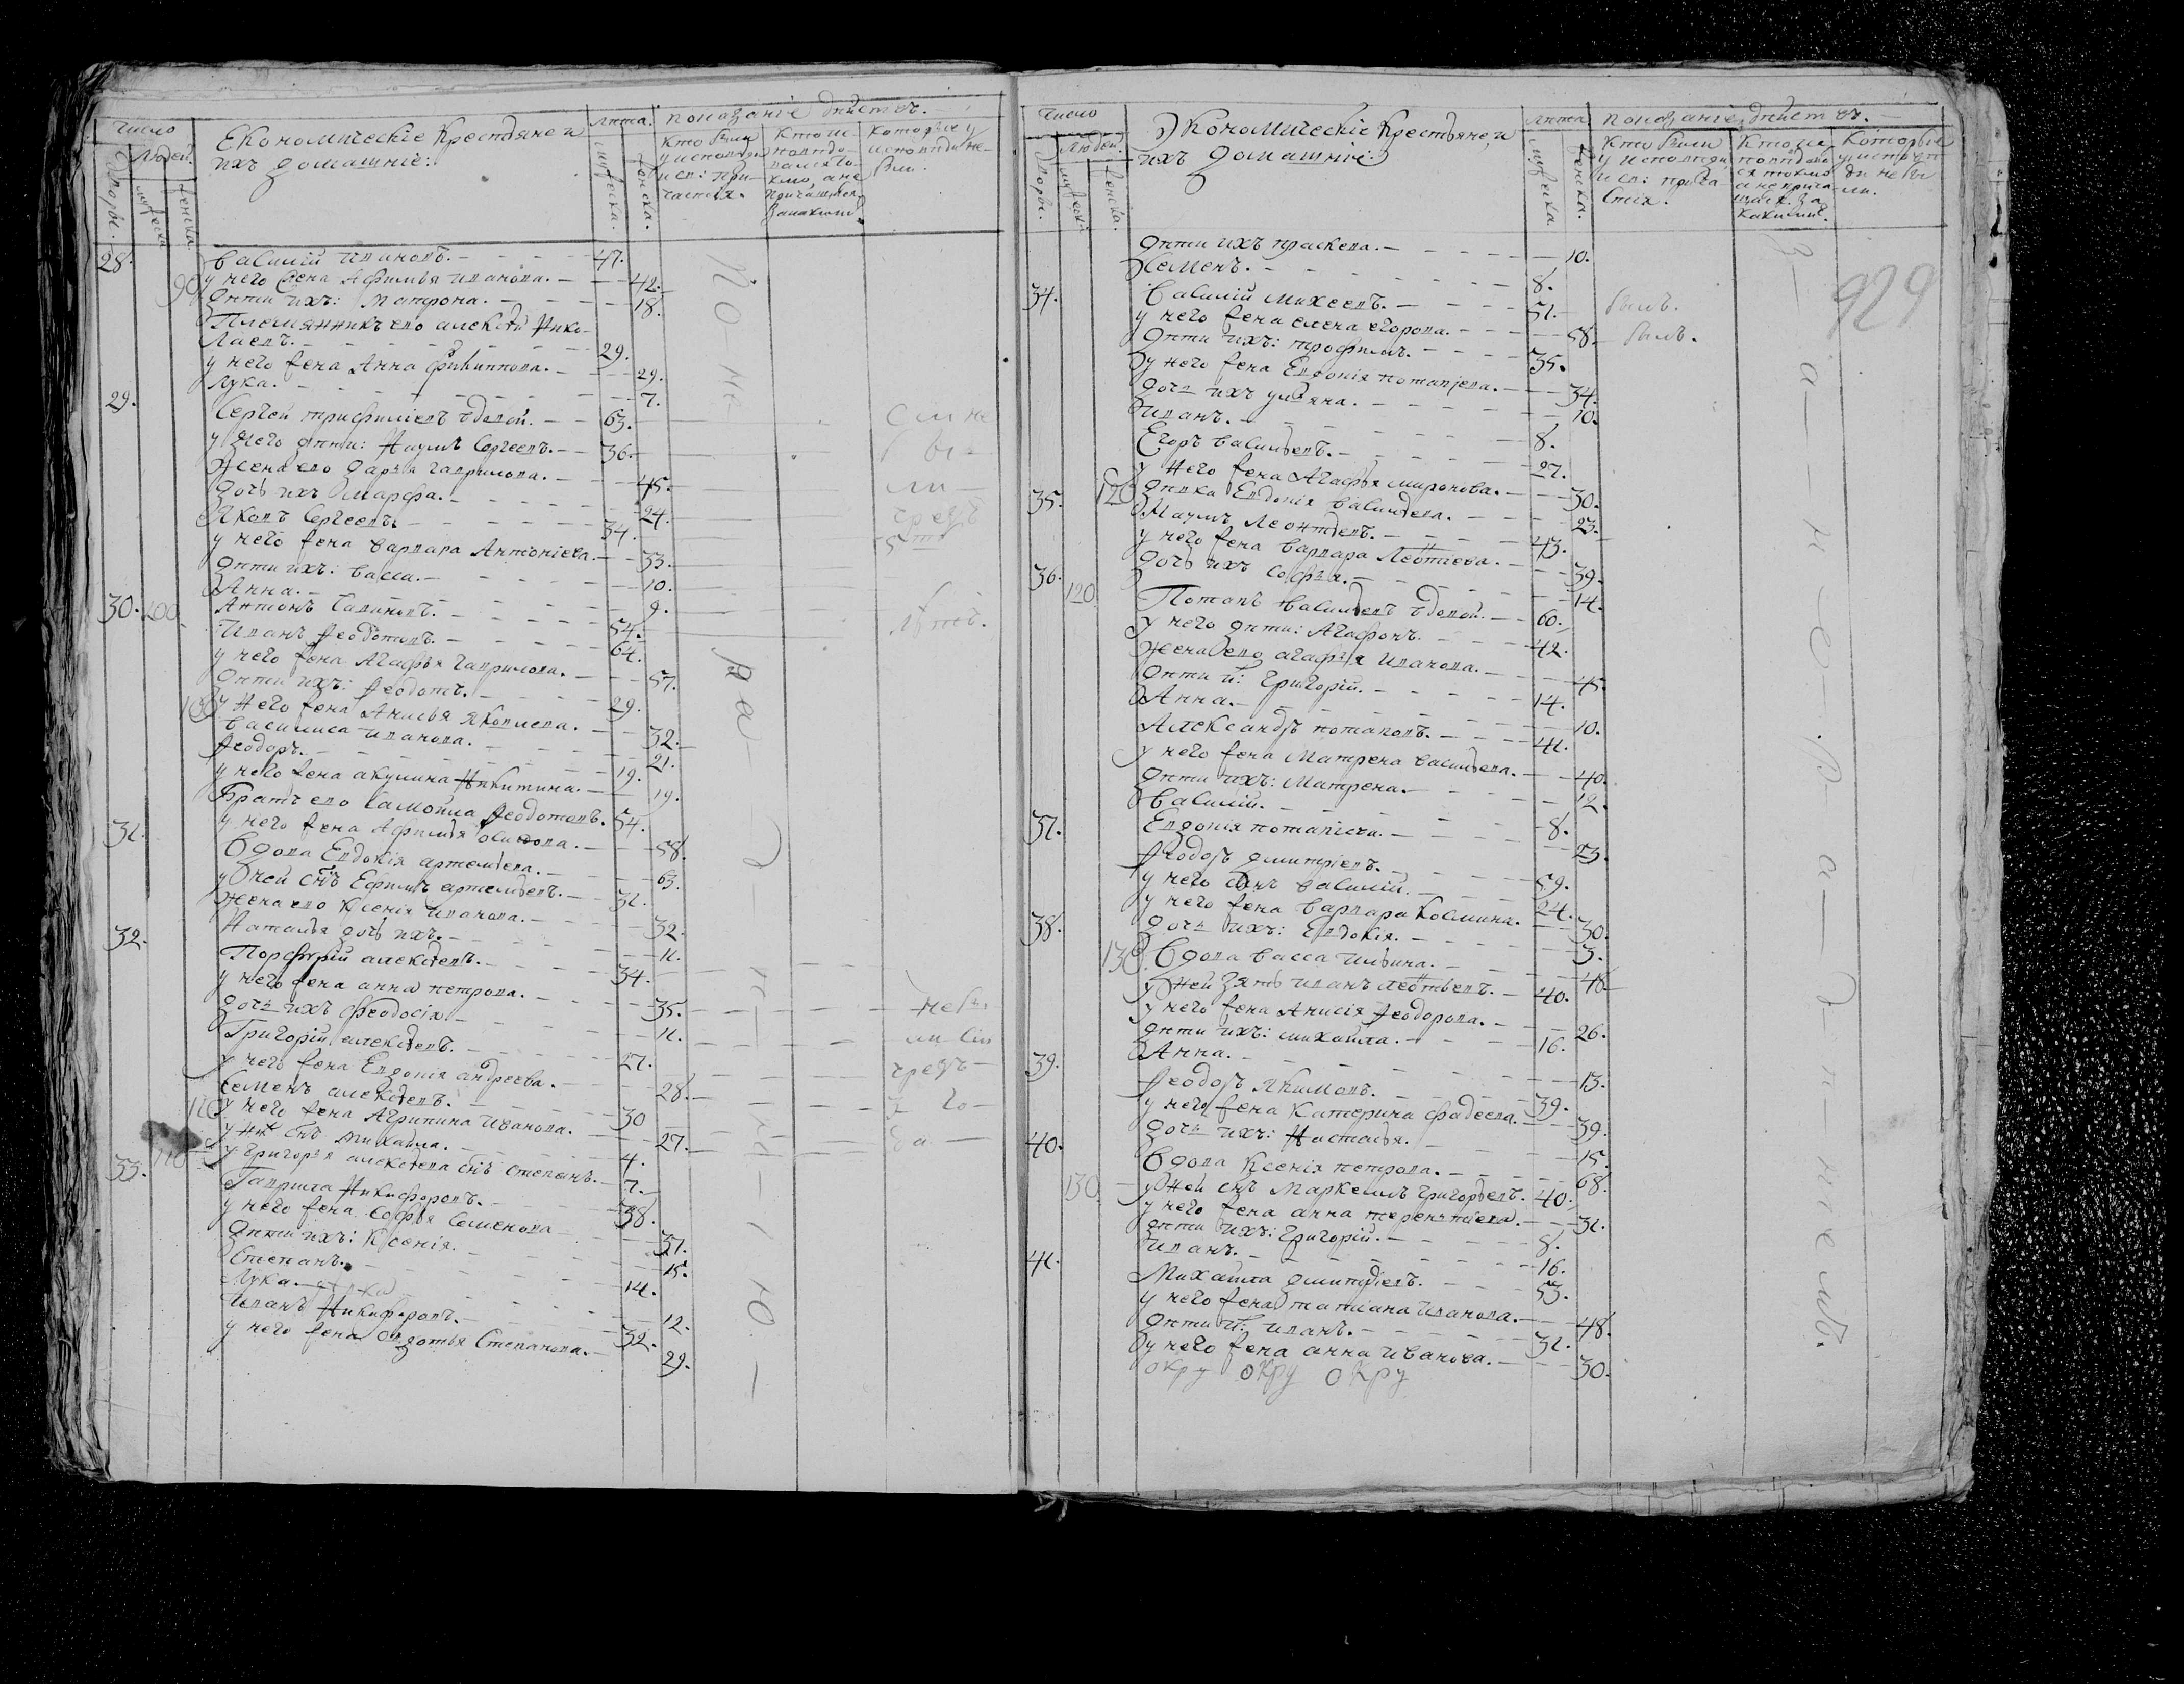 число
людей.
дворы.
мужеска
женска.
Економическïе крестьяне и
ихъ домашнïе:
лѣта.
мужеска.
женска.
показанïе дѣйствъ.
Кто были
у исповѣди
и св: при-
частïя.
Кто ис
повѣдо-
вался то-
кмо, а не
причащался
Которые у
исповѣди не-
были.
28. Василïй Ивановъ. 47.
90 у него жена Афимья Иванова. 42.
дѣти ихъ: Матрона. 18.
Племянникъ его Алексѣй Нико-
лаевъ. 29.
у него жена Анна Филиппова. 29.
Лука. 7.
29. Сергѣй Трифилïевъ вдовой. 63.
у него дѣти: Наумъ Сергеевъ. 36.
Жена его Дарья Гаврилова. 45.
дочь ихъ Марфа. 24.
Яковъ Сергеевъ. 34.
у него жена Варвара Антонïева. 33.
дѣти ихъ: Васса. 10.
Анна. 9.
30. 100 Антонъ Савиновъ. 54.
Иванъ Ѳеодотовъ. 64.
у него жена Агафья Гаврилова. 57.
дѣти ихъ: Ѳеодотъ. 29.
100 у него жена Анисья Яковлева. 32.
Василиса Иванова. 21.
Ѳеодоръ. 19.
у него жена Акулина Никитина. 19.
Братъ его Самойла Ѳеодотовъ. 54.
у него жена Афимья Осипова. 58.
31. Вдова Евдокïя Артемьева. 63.
у ней снъ Ефимъ Артемьевъ. 31.
Жена его Ксенïя Иванова. 32.
Наталья дочь ихъ. 11.
32. Порфирïй Алексѣевъ. 34.
у него жена Анна Петрова. 35.
дочь ихъ Ѳеодосïя. 11.
Григорïй Алексѣевъ. 27.
у него жена Евдокïя Андреева. 28.
Семенъ Алексѣевъ. 30
110 у него жена Агрипина Иванова. 27.
у нихъ снъ Михайла. 4.
у Григорья Алексѣева снъ Степанъ. 7.
33. 110 Гаврила Никифоровъ. 38.
у него жена Софья Семенова 37.
дѣти ихъ: Ксенïя. 15.
Степанъ. 14.
Лука. 12.
Иванъ Никифоровъ. 32.
у него жена Авдотья Степанова. 29.
число
людей.
дворы.
мужеск.
женска.
Економическïе крестьяне, и
ихъ домашнïе:
лѣта
мужеска
женска.
показанïе дѣйствъ.
Кто были
у исповѣди
и св: прича-
стïя.
Кто ис
повѣдова
ся токмо
а не прича
щался. за
какимъ.
Которые
у исповѣ
ди не бы
ли.
929
дѣти ихъ Праскева. 10.
Семенъ. 8.
34. Василïй Михеевъ. 51. былъ.
у него жена Елена Егорова. 58. былъ.
дѣти ихъ: Трофимъ. 35.
у него жена Евдокïя Потапïева. 34.
дочь ихъ Ульяна. 10.
Иванъ. 8.
Егоръ Васильевъ. 27.
у него жена Агафья Миронова. 30.
120 дѣвка Евдокïя Васильева. 23.
35. Наумъ Леонтьевъ. 43.
у него жена Варвара Леонтïева. 39.
дочь ихъ Софья. 14.
36. 120 Потапъ Васильевъ вдовой. 60.
у него дѣти: Агафонъ. 42.
Жена его Агафья Иванова. 45.
дѣти и: Григорïй. 14.
Анна. 10.
Александръ Потаповъ. 41.
у него жена Матрена Васильева. 40.
дѣти ихъ: Матрена. 12.
Василïй. 8.
Евдокïя Потапïева. 23.
37. Ѳеодоръ Дмитрïевъ. 59.
у него снъ Василïй. 24.
у него жена Варвара Козмина. 30.
дочь ихъ: Евдокïя. 3.
38. 130 Вдова Васса Ильина. 48
у ней зять Иванъ Леонтьевъ. 40.
у него жена Анисïя Ѳеодорова. 26.
дѣти ихъ: Михайла. 16.
Анна. 13.
39. Ѳеодоръ Якимовъ. 39.
у него жена Катерина Фадеева. 39.
дочь ихъ: Настасья. 15.
40. Вдова Ксенïя Петрова. 68.
130. у ней снъ Маркеллъ Григорьевъ. 40.
у него жена Анна Терентïева. 31.
дѣти ихъ: Григорïй. 8.
Иванъ. 16.
41. Михайла Дмитрïевъ. 53.
у него жена Татïана Иванова. 48.
дѣти их: Иванъ. 31.
у него жена Анна Иванова. 30.
окру окру окру